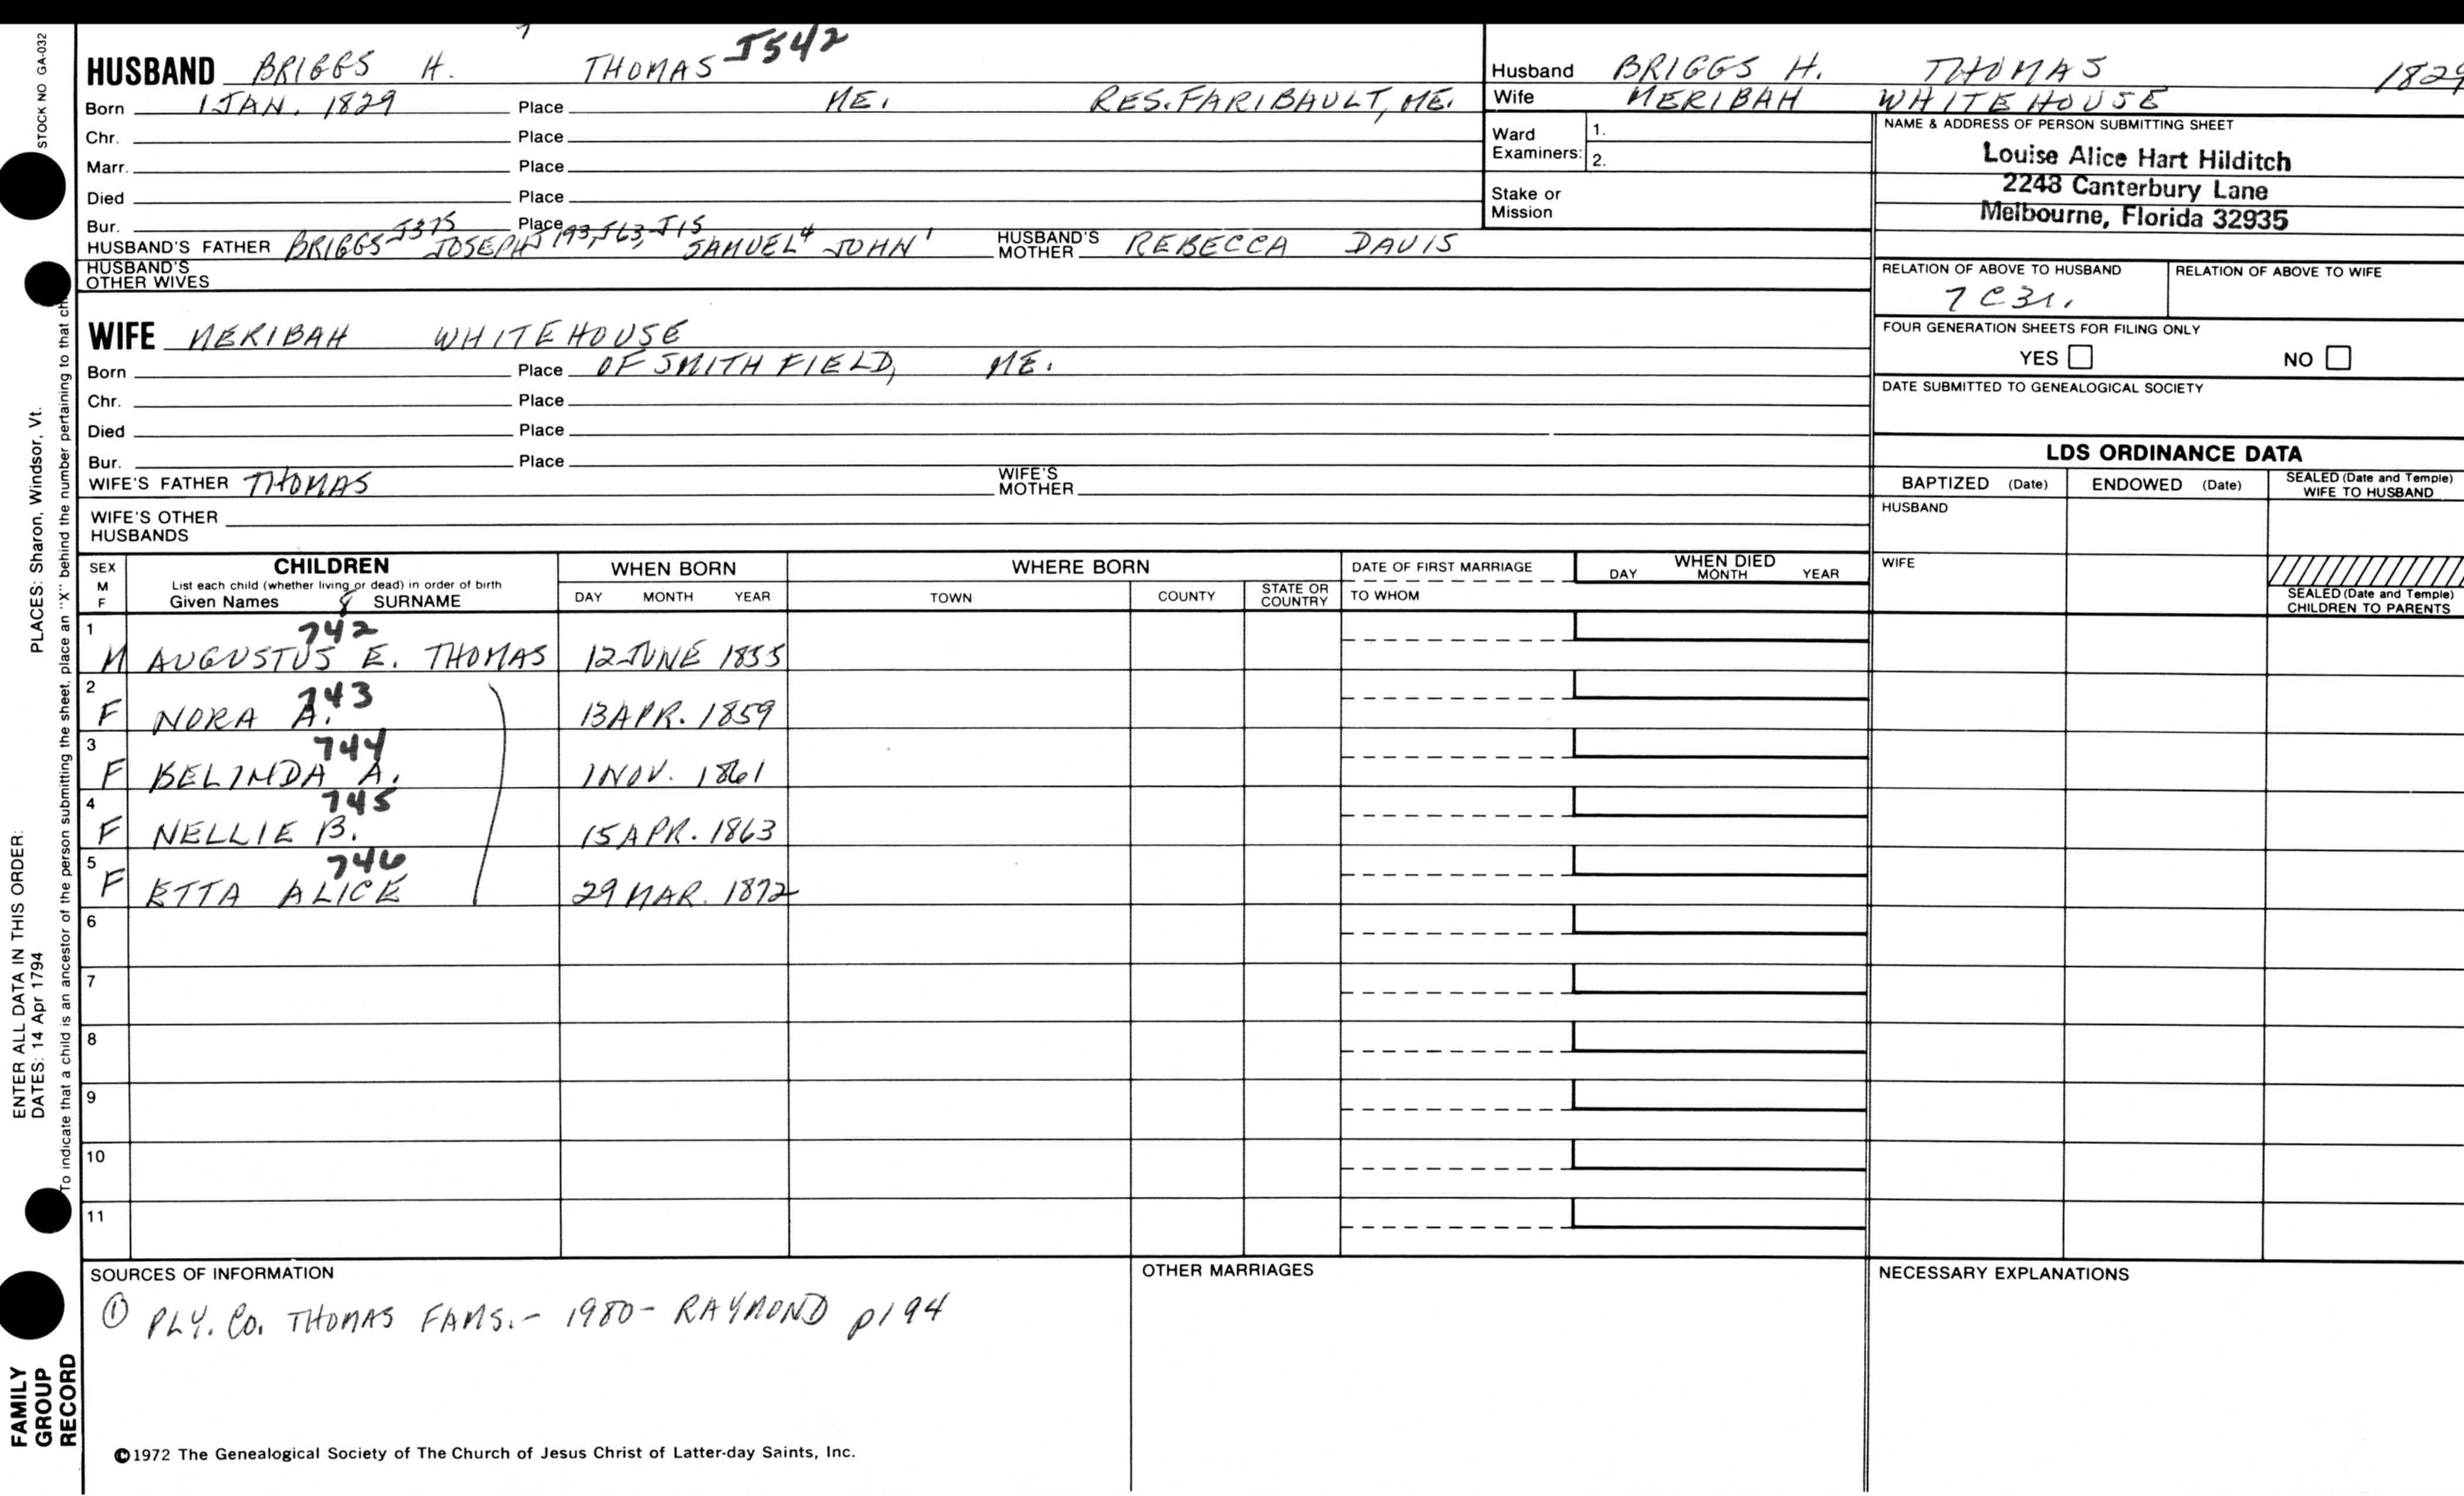 STOCK NO GA-032
7
HUSBAND BRIGGS H. THOMAS J542
Born 1 JAN. 1829 Place ME. RES. FARIBAULT, ME.
Chr. Place
Marr. Place
Died Place
Bur. Place
HUSBAND'S FATHER BRIGGS J375 JOSEPH J193, J63, J15 SAMUEL 4 JOHN 1 HUSBAND'S MOTHER REBECCA DAVIS
HUSBAND'S OTHER WIVES
WIFE MERIBAH WHITEHOUSE
Born Place OF SMITHFIELD, ME.
Chr. Place
Died Place
Bur. Place
WIFE'S FATHER THOMAS WIFE'S MOTHER
WIFE'S OTHER HUSBANDS
Husband BRIGGS H. THOMAS 1829
Wife MERIBAH WHITEHOUSE
Ward Examiners: 1.
2.
Stake or Mission
NAME & ADDRESS OF PERSON SUBMITTING SHEET
Louise Alice Hart Hilditch
2248 Canterbury Lane
Melbourne, Florida 32935
RELATION OF ABOVE TO HUSBAND RELATION OF ABOVE TO WIFE
7C3r.
FOUR GENERATION SHEETS FOR FILING ONLY
YES NO
DATE SUBMITTED TO GENEALOGICAL SOCIETY
LDS ORDINANCE DATA
BAPTIZED (Date) ENDOWED (Date) SEALED (Date and Temple) WIFE TO HUSBAND
HUSBAND
WIFE
SEALED (Date and Temple) CHILDREN TO PARENTS
SEX M F
CHILDREN
List each child (whether living or dead) in order of birth
Given Names 8 SURNAME
WHEN BORN
DAY MONTH YEAR
WHERE BORN
TOWN COUNTY STATE OR COUNTRY
DATE OF FIRST MARRIAGE
TO WHOM
WHEN DIED
DAY MONTH YEAR
1 742
M AUGUSTUS E. THOMAS 12 JUNE 1855
2 743
F NORA A. 13 APR. 1859
3 744
F BELINDA A. 1 NOV. 1861
4 745
F NELLIE B. 15 APR. 1863
5 746
F ETTA ALICE 29 MAR. 1872
6
7
8
9
10
11
SOURCES OF INFORMATION
① PLY. CO. THOMAS FAMS. - 1980 - RAYMOND p194
OTHER MARRIAGES
NECESSARY EXPLANATIONS
©1972 The Genealogical Society of The Church of Jesus Christ of Latter-day Saints, Inc.
PLACES: Sharon, Windsor, Vt.
ENTER ALL DATA IN THIS ORDER:
DATES: 14 Apr 1794
To indicate that a child is an ancestor of the person submitting the sheet, place an "X" behind the number pertaining to that
FAMILY
GROUP
RECORD